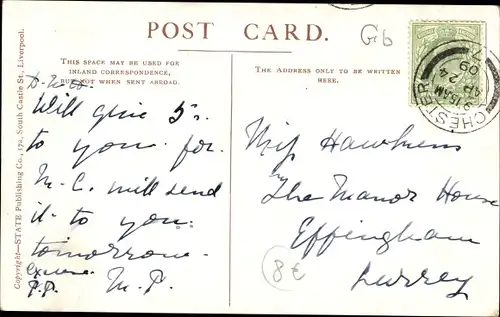 POST CARD.
Gb
THIS SPACE MAY BE USED FOR
INLAND CORRESPONDENCE,
BUT NOT WHEN SENT ABROAD.
THE ADDRESS ONLY TO BE WRITTEN
HERE.
CHESTER
9.15 AM
AP 24
09
Will give 5/-
to you for
M.C. will send
it to you
tomorrow.
Excuse
P.P. M.P.
Miss Hawkens
The Manor House
Effingham
Surrey
8€
Copyright—STATE Publishing Co., 17a, South Castle St., Liverpool.